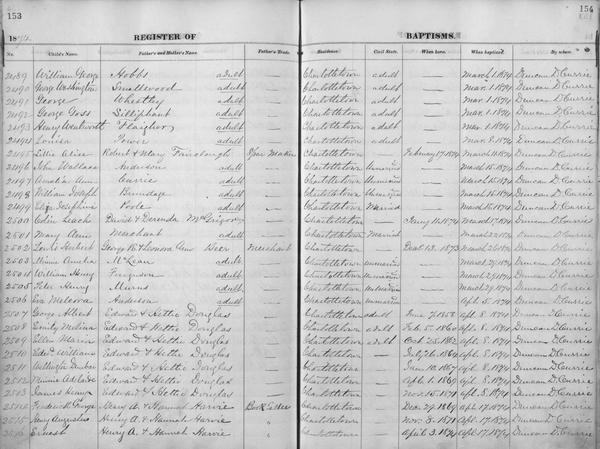 153
154
1874
REGISTER OF
BAPTISMS.
No. Child's Name. Father's and Mother's Name. Father's Trade. Residence. Civil State. When born. When baptized. By whom.
2489 William George Hobbs adult Charlottetown adult March 1 1874 Duncan D. Currie
2490 George Washington Smallwood adult Charlottetown adult Mar. 1. 1874 Duncan D. Currie
2491 George Wheatley adult Charlottetown adult Mar. 1. 1874 Duncan D. Currie
2492 George Goss Silliphant adult Charlottetown adult Mar. 1. 1874 Duncan D. Currie
2493 Henry adult Charlottetown adult Mar. 1 1874 Duncan D. Currie
2494 Louisa Power adult Charlottetown adult Mar. 1 1874 Duncan D. Currie
2495 Lillie Alice Robert & Mary Charlottetown 1874 Duncan D. Currie
2496 John Wallace Anderson adult Charlottetown Mar. 15 1874 Duncan D. Currie
2497 Currie adult Charlottetown 1874 Duncan D. Currie
2498 William Joseph Brundage adult Charlottetown Mar. 15 1874 Duncan D. Currie
2499 Josephine Poole adult Charlottetown Married 1874 Duncan D. Currie
2500 Leach David & Charlottetown 1874 Duncan D. Currie
2501 Mary Ann Merchant adult Charlottetown Married 1874 Duncan D. Currie
2502 Hubert George R & Leonora Ann Beer Merchant Charlottetown 1873 1874 Duncan D. Currie
2503 Minnie Amelia McLean adult Charlottetown 1874 Duncan D. Currie
2504 William Henry Ferguson adult Charlottetown 1874 Duncan D. Currie
2505 Henry Murns adult Charlottetown 1874 Duncan D. Currie
2506 Eva Melvora Anderson adult Charlottetown Apl. 5 1874 Duncan D. Currie
2507 George Albert Edward & Hettie Douglas Charlottetown adult June 7 1858 Apl. 8. 1874 Duncan D. Currie
2508 Emily Melina Edward & Hettie Douglas Charlottetown adult Feb. 5. 1860 Apl. 8. 1874 Duncan D. Currie
2509 Ellen Maria Edward & Hettie Douglas Charlottetown adult Oct. 25 1862 Apl. 8. 1874 Duncan D. Currie
2510 William Edward & Hettie Douglas Charlottetown 1864 Apl. 8. 1874 Duncan D. Currie
2511 Edward & Hettie Douglas Charlottetown 1867 Apl. 8. 1874 Duncan D. Currie
2512 Minnie Adelaide Edward & Hettie Douglas Charlottetown Apl. 1. 1869 Apl. 8. 1874 Duncan D. Currie
2513 James Edward & Hettie Douglas Charlottetown Nov. 15. 1871 Apl. 8. 1874 Duncan D. Currie
2514 Frederick George Henry A. & Hannah Harvie Book Seller Charlottetown Dec. 29 1869 Apl. 17. 1874 Duncan D. Currie
2515 Henry Augustus Henry A. & Hannah Harvie " Charlottetown Nov. 5 1871 Apl. 17. 1874 Duncan D. Currie
2516 Ernest Henry A. & Hannah Harvie " Charlottetown April 3. 1874 Apl. 17. 1874 Duncan D. Currie